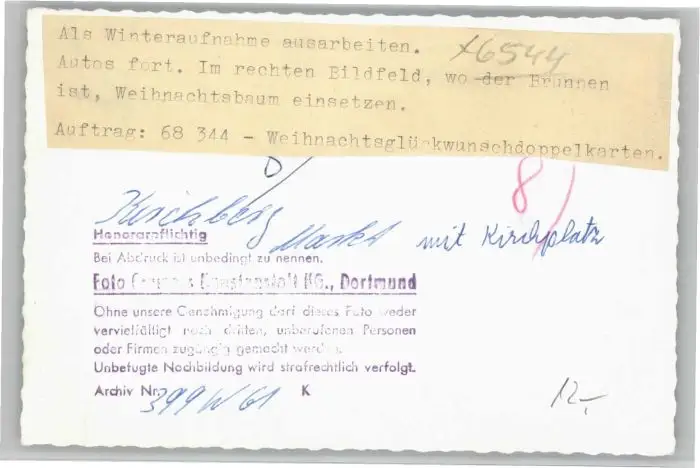 Als Winteraufnahme ausarbeiten.
x6544
Autos fort. Im rechten Bildfeld, wo der Brunnen
ist, Weihnachtsbaum einsetzen.
Auftrag: 68 344 - Weihnachtsglückwunschdoppelkarten.
8
Kirchberg
Markt mit Kirchplatz
Honorarpflichtig
Bei Abdruck ist unbedingt zu nennen.
Foto KG., Dortmund
Ohne unsere Genehmigung darf dieses Foto weder
vervielfältigt noch dritten, unberufenen Personen
oder Firmen zugängig gemacht werden.
Unbefugte Nachbildung wird strafrechtlich verfolgt.
Archiv Nr. 399 W 61 K
12,-